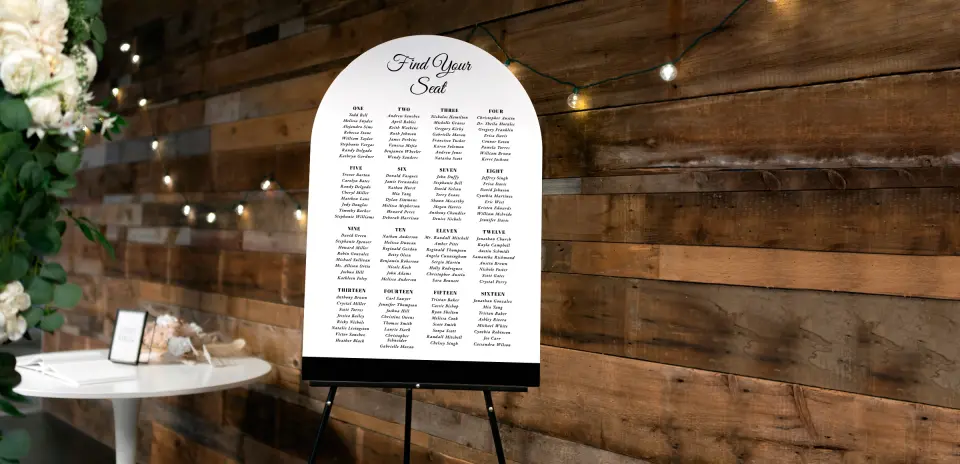 Find Your
Seat
ONE
Todd Bell
Melissa Snyder
Alejandro Sims
Rebecca Stone
William Taylor
Stephanie Vargas
Randy Delgado
Kathryn Gardner
TWO
Andrew Sanchez
April Robles
Keith Watkins
Ruth Johnson
James Perkins
Vanessa Mejia
Benjamin Wheeler
Wendy Sanders
THREE
Nicholas Hamilton
Michelle Graves
Gregory Kirby
Gabrielle Mason
Francisco Tucker
Karen Solomon
Andrew Jones
Natasha Scott
FOUR
Christopher Austin
Dr. Sheila Morales
Gregory Franklin
Erica Davis
Connor Estes
Pamela Torres
William Brown
Karen Jackson
FIVE
Trevor Barton
Carolyn Bates
Randy Delgado
Cheryl Miller
Matthew Lane
Judy Douglas
Timothy Barker
Stephanie Williams
SIX
Donald Vasquez
Jamie Fernandez
Nathan Hurst
Mia Yang
Dylan Simmons
Melissa Mcpherson
Howard Perez
Deborah Harrison
SEVEN
John Duffy
Stephanie Bell
David Nelson
Terry Evans
Shawn Mccarthy
Megan Harris
Anthony Chandler
Denise Nichols
EIGHT
Jeffrey Singh
Erica Davis
David Johnson
Cynthia Martinez
Eric West
Kristen Edwards
William Mcbride
Jennifer Stein
NINE
David Green
Stephanie Spencer
Howard Miller
Robin Gonzales
Michael Sullivan
Ms. Allison Ortiz
Joshua Hill
Kathleen Foley
TEN
Nathan Anderson
Melissa Duncan
Reginald Gordon
Betty Olson
Benjamin Roberson
Nicole Koch
John Adams
Melissa Anderson
ELEVEN
Mr. Randall Mitchell
Amber Pitts
Reginald Thompson
Angela Cunningham
Sergio Martin
Holly Rodriguez
Christopher Austin
Sara Bennett
TWELVE
Jonathan Church
Kayla Campbell
Austin Schmidt
Samantha Richmond
Austin Brown
Nichole Foster
Scott Gates
Crystal Perry
THIRTEEN
Anthony Brown
Crystal Miller
Scott Torres
Jessica Bailey
Ricky Nichols
Natalie Livingston
Victor Sanchez
Heather Black
FOURTEEN
Carl Sawyer
Jennifer Thompson
Joshua Hill
Christina Owens
Thomas Smith
Laurie Stark
Christopher
Schneider
Gabrielle Mason
FIFTEEN
Tristan Baker
Carrie Bishop
Ryan Shelton
Melissa Cook
Scott Smith
Sonya Scott
Randall Mitchell
Chelsey Singh
SIXTEEN
Jonathan Gonzales
Mia Yang
Tristan Baker
Ashley Rivera
Michael White
Cynthia Robinson
Joe Carr
Cassandra Wilson